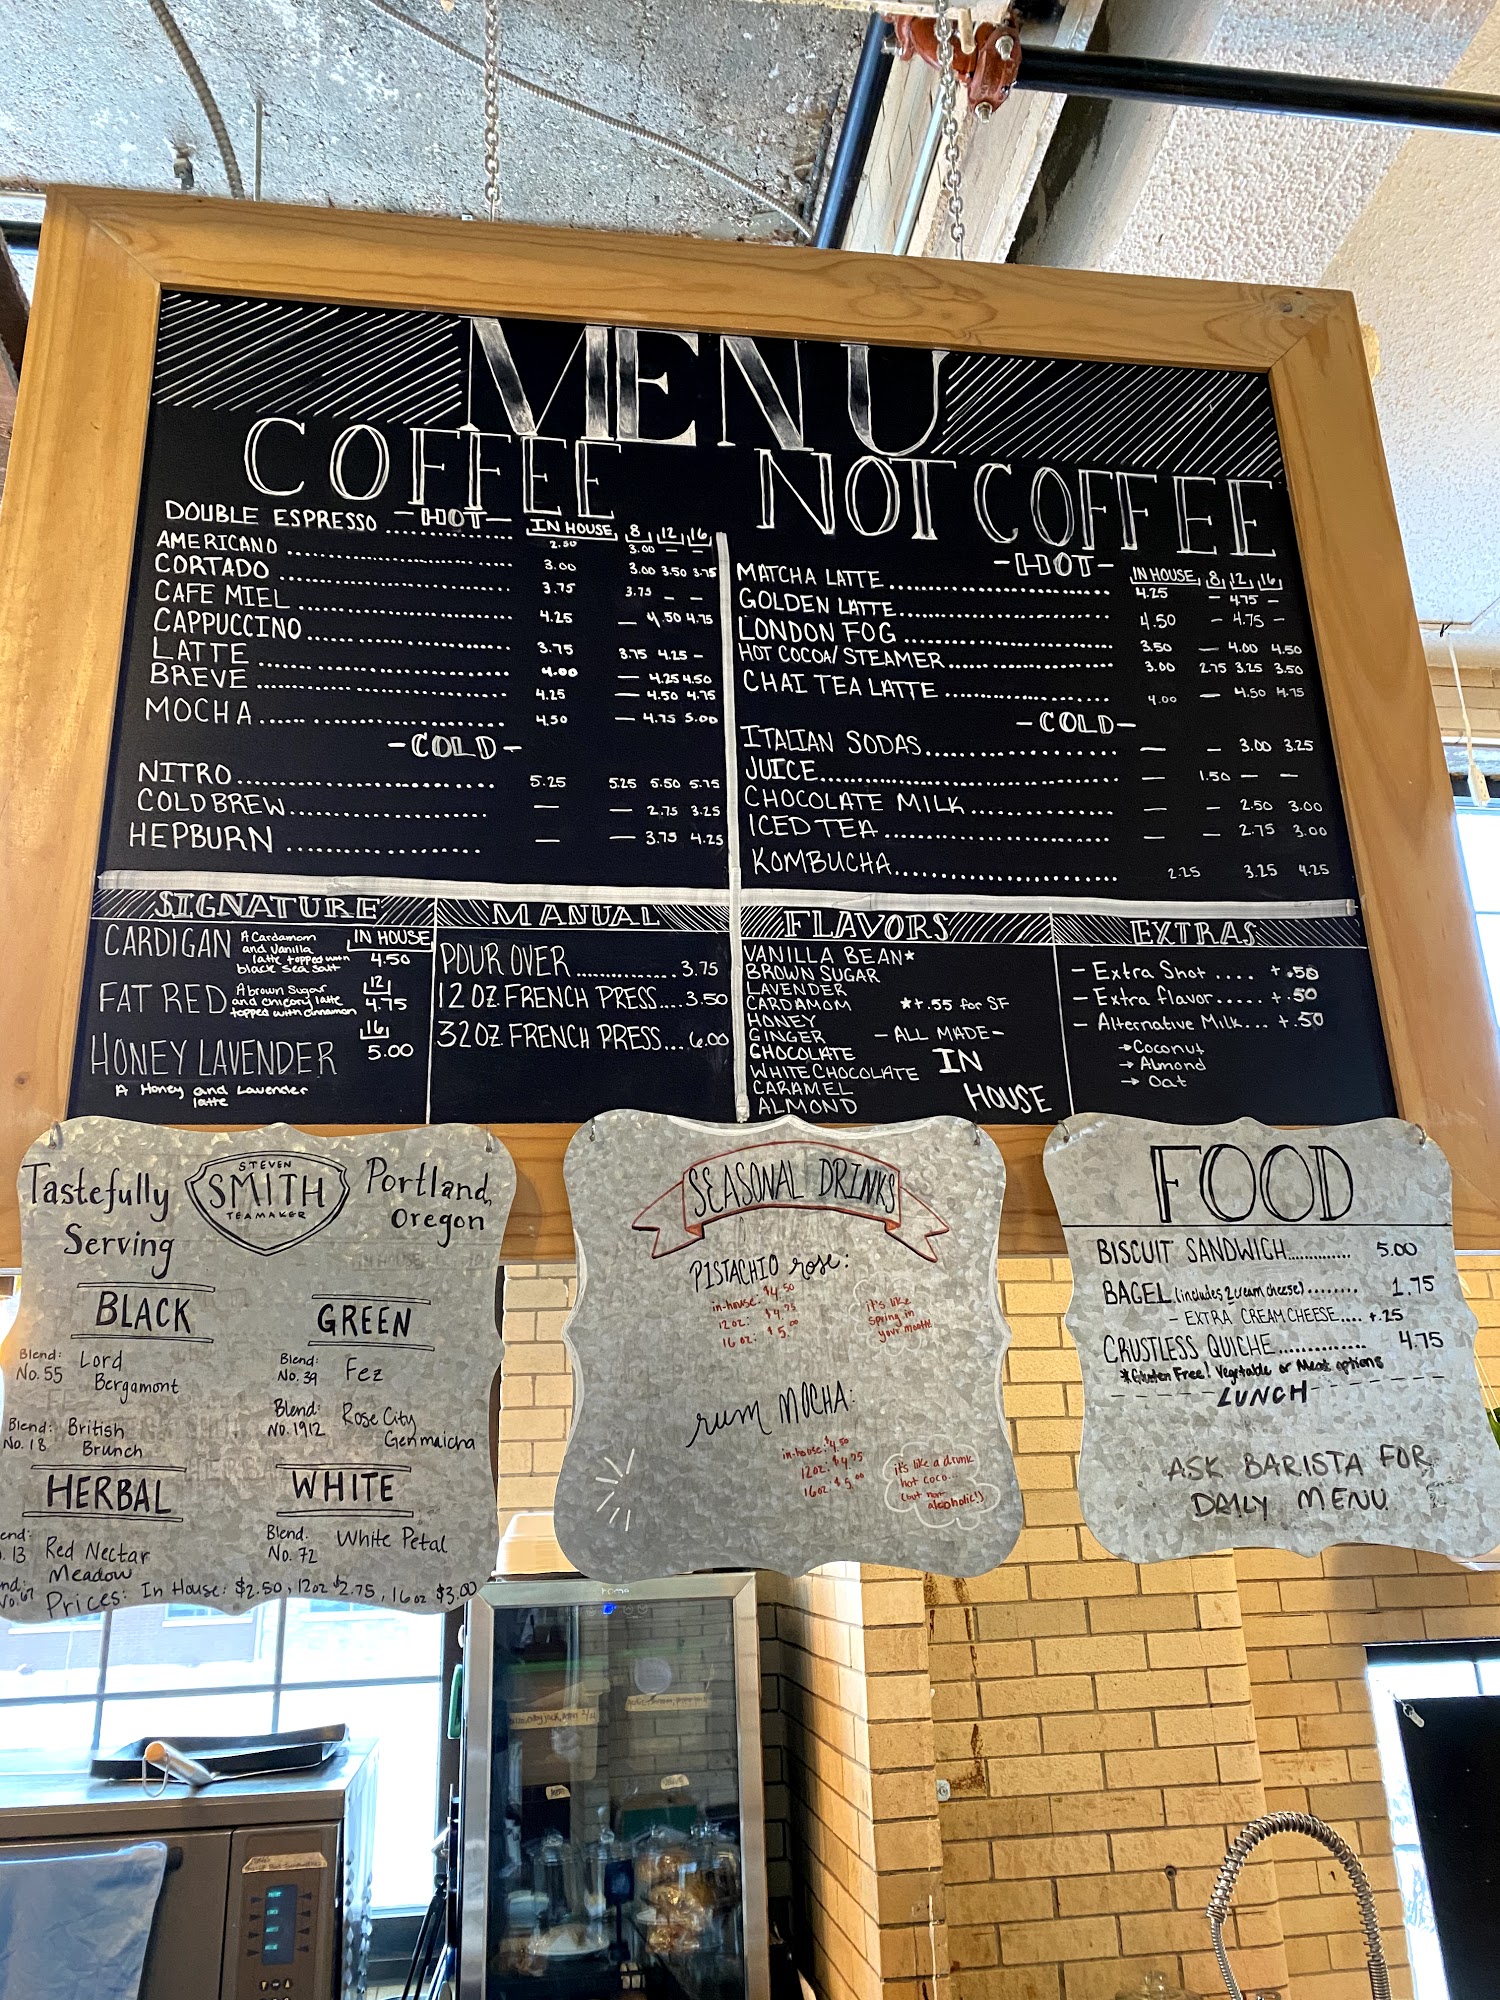 MENU
COFFEE
-HOT-
IN HOUSE 8 12 16
DOUBLE ESPRESSO .......... 2.50 3.00 — —
AMERICANO .......... 3.00 3.00 3.50 3.75
CORTADO .......... 3.75 3.75 — —
CAFE MIEL .......... 4.25 — 4.50 4.75
CAPPUCCINO .......... 3.75 3.75 4.25 -
LATTE .......... 4.00 — 4.25 4.50
BREVE .......... 4.25 — 4.50 4.75
MOCHA .......... 4.50 — 4.75 5.00
-COLD-
NITRO .......... 5.25 5.25 5.50 5.75
COLD BREW .......... — — 2.75 3.25
HEPBURN .......... — — 3.75 4.25
NOT COFFEE
-HOT-
IN HOUSE 8 12 16
MATCHA LATTE .......... 4.25 — 4.75 —
GOLDEN LATTE .......... 4.50 — 4.75 —
LONDON FOG .......... 3.50 — 4.00 4.50
HOT COCOA/STEAMER .......... 3.00 2.75 3.25 3.50
CHAI TEA LATTE .......... 4.00 — 4.50 4.75
-COLD-
ITALIAN SODAS .......... — — 3.00 3.25
JUICE .......... — 1.50 — —
CHOCOLATE MILK .......... — — 2.50 3.00
ICED TEA .......... — — 2.75 3.00
KOMBUCHA .......... 2.25 3.25 4.25
SIGNATURE
IN HOUSE
4.50
12
4.75
16
5.00
CARDIGAN
A Cardamom
and Vanilla
latte topped with
black sea salt
FAT RED
A brown sugar
and chicory latte
topped with cinnamon
HONEY LAVENDER
A Honey and Lavender
latte
MANUAL
POUR OVER .......... 3.75
12 OZ. FRENCH PRESS.... 3.50
32 OZ FRENCH PRESS... 6.00
FLAVORS
VANILLA BEAN*
BROWN SUGAR
LAVENDER
CARDAMOM
HONEY
GINGER
CHOCOLATE
WHITE CHOCOLATE
CARAMEL
ALMOND
*+.55 for SF
-ALL MADE-
IN
HOUSE
EXTRAS
- Extra Shot .... +.50
- Extra flavor..... +.50
- Alternative Milk... +.50
→ Coconut
→ Almond
→ Oat
Tastefully
Serving
STEVEN
SMITH
TEAMAKER
Portland,
Oregon
BLACK
Blend:
No. 55 Lord
Bergamont
Blend:
No. 18 British
Brunch
GREEN
Blend:
No. 39 Fez
Blend:
No. 1912 Rose City
Genmaicha
HERBAL
13 Red Nectar
Meadow
WHITE
Blend.
No. 72 White Petal
Prices: In House: $2.50, 12oz $2.75, 16oz $3.00
SEASONAL DRINKS
PISTACHIO rose:
in-house: $4.50
12 oz: $4.75
16 oz: $5.00
it's like
spring in
your mouth!
rum MOCHA:
in-house: $4.50
12oz: $4.75
16oz: $5.00
it's like a drunk
hot coco...
(but non-
alcoholic!)
FOOD
BISCUIT SANDWICH............. 5.00
BAGEL (includes 2 cream cheese)........ 1.75
- EXTRA CREAM CHEESE.... +.25
CRUSTLESS QUICHE.............. 4.75
*Gluten Free! Vegetable or Meat options
LUNCH
ASK BARISTA FOR
DAILY MENU